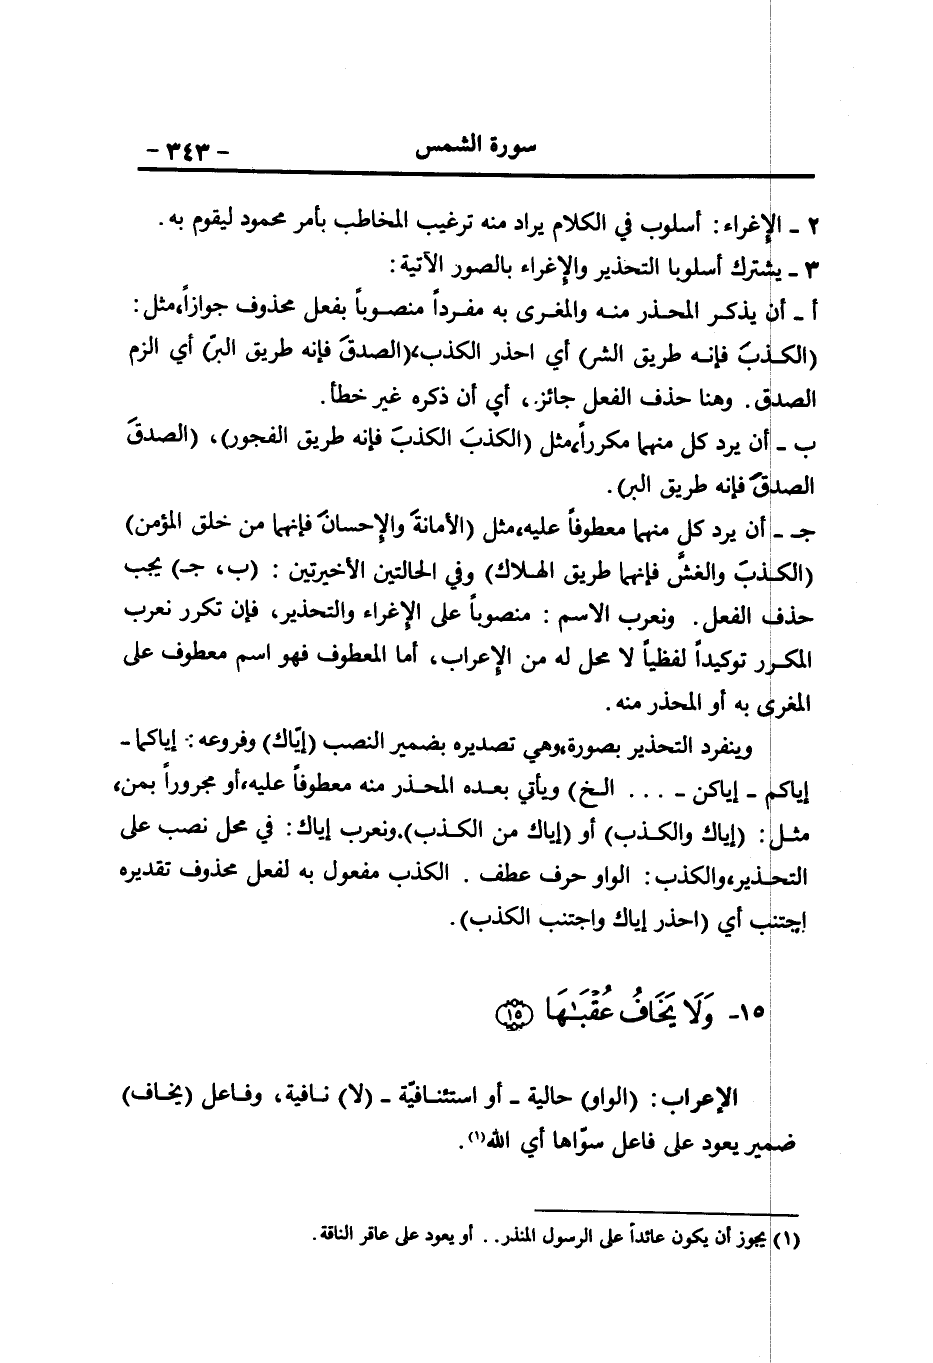 سورة الشمس - ٣٤٣ -
٢ ـ الإغراء: أسلوب في الكلام يراد منه ترغيب المخاطب بأمر محمود ليقوم به.
٣ ـ يشترك أسلوبا التحذير والإغراء بالصور الآتية:
أ ـ أن يذكر المحذر منه والمغرى به مفرداً منصوباً بفعل محذوف جوازاً، مثل:
(الكذبَ فإنه طريق الشر) أي احذر الكذب، (الصدقَ فإنه طريق البرّ) أي الزم
الصدق. وهنا حذف الفعل جائز.، أي أن ذكره غير خطأ.
ب ـ أن يرد كل منهما مكرراً، مثل (الكذبَ الكذبَ فإنه طريق الفجور)، (الصدقَ
الصدقَ فإنه طريق البر).
جـ ـ أن يرد كل منهما معطوفاً عليه، مثل (الأمانةَ والإحسانَ فإنهما من خلق المؤمن)
(الكذبَ والغشَّ فإنهما طريق الهلاك) وفي الحالتين الأخيرتين: (ب، جـ) يجب
حذف الفعل. ونعرب الاسم: منصوباً على الإغراء والتحذير، فإن تكرر نعرب
المكرر توكيداً لفظياً لا محل له من الإعراب، أما المعطوف فهو اسم معطوف على
المغرى به أو المحذر منه.
وينفرد التحذير بصورة، وهي تصديره بضمير النصب (إيّاك) وفروعه: إياكما ـ
إياكم ـ إياكن ـ ... الخ) ويأتي بعده المحذر منه معطوفاً عليه، أو مجروراً بمن،
مثل: (إياك والكذب) أو (إياك من الكذب). ونعرب إياك: في محل نصب على
التحذير، والكذب: الواو حرف عطف. الكذب مفعول به لفعل محذوف تقديره
إجتنب أي (احذر إياك واجتنب الكذب).
١٥- وَلَا يَخَافُ عُقْبَـٰهَا ﴿١٥﴾
الإعراب: (الواو) حالية ـ أو استئنافيّة ـ (لا) نافية، وفاعل (يخاف)
ضمير يعود على فاعل سوّاها أي الله(١).
(١) يجوز أن يكون عائداً على الرسول المنذر.. أو يعود على عاقر الناقة.